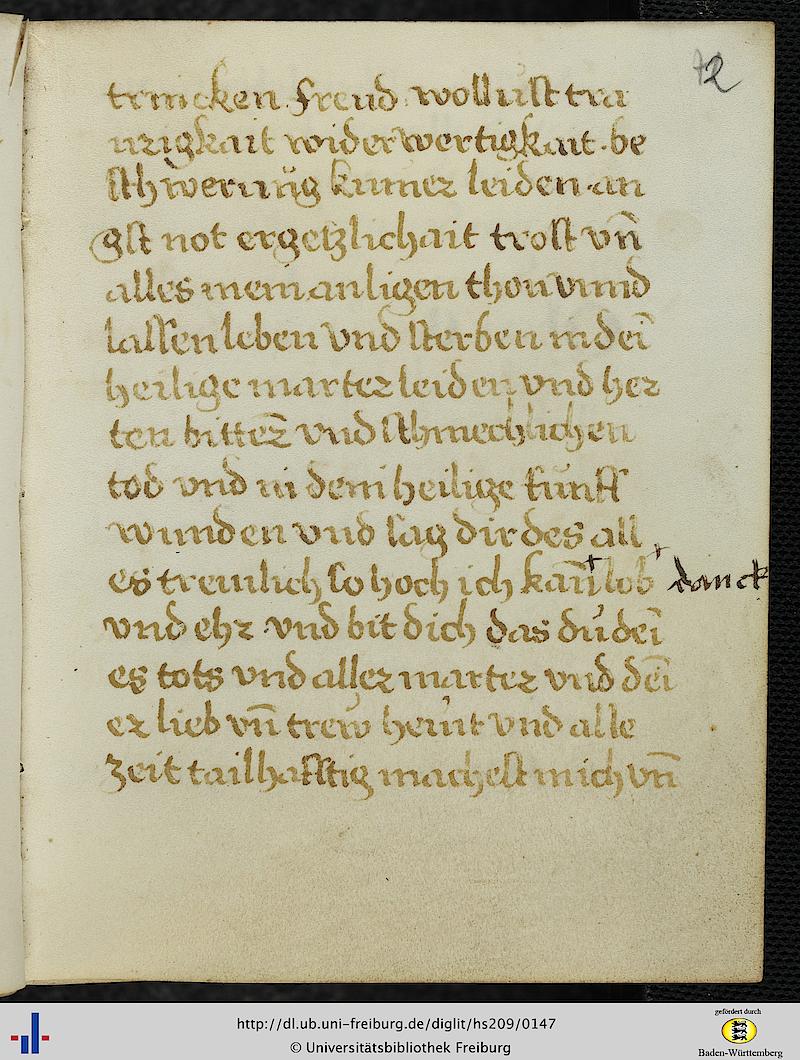 72
trincken freud wollust tra
urigkait widerwertigkait· be
schwerung kumer leiden· an
gst not ergetzlichait trost vn̄
alles mein anligen thon vnnd
lassen leben vnd sterben in dei̅
heilige marter leiden vnd her
ten bitter̅ vnd schmechlichen
tod vnd in dein heilige funff
wunden vnd sag dir des all
es treulich so hoch ich kan̅ lob danck
vnd ehr vnd bit dich das du̇ dei̅
es tots vnd aller marter vnd dei̅
er lieb vn̄ trew heint vnd alle
zeit tailhafftig machest mich vn̄
http://dl.ub.uni-freiburg.de/diglit/hs209/0147
© Universitätsbibliothek Freiburg
gefördert durch
Baden-Württemberg